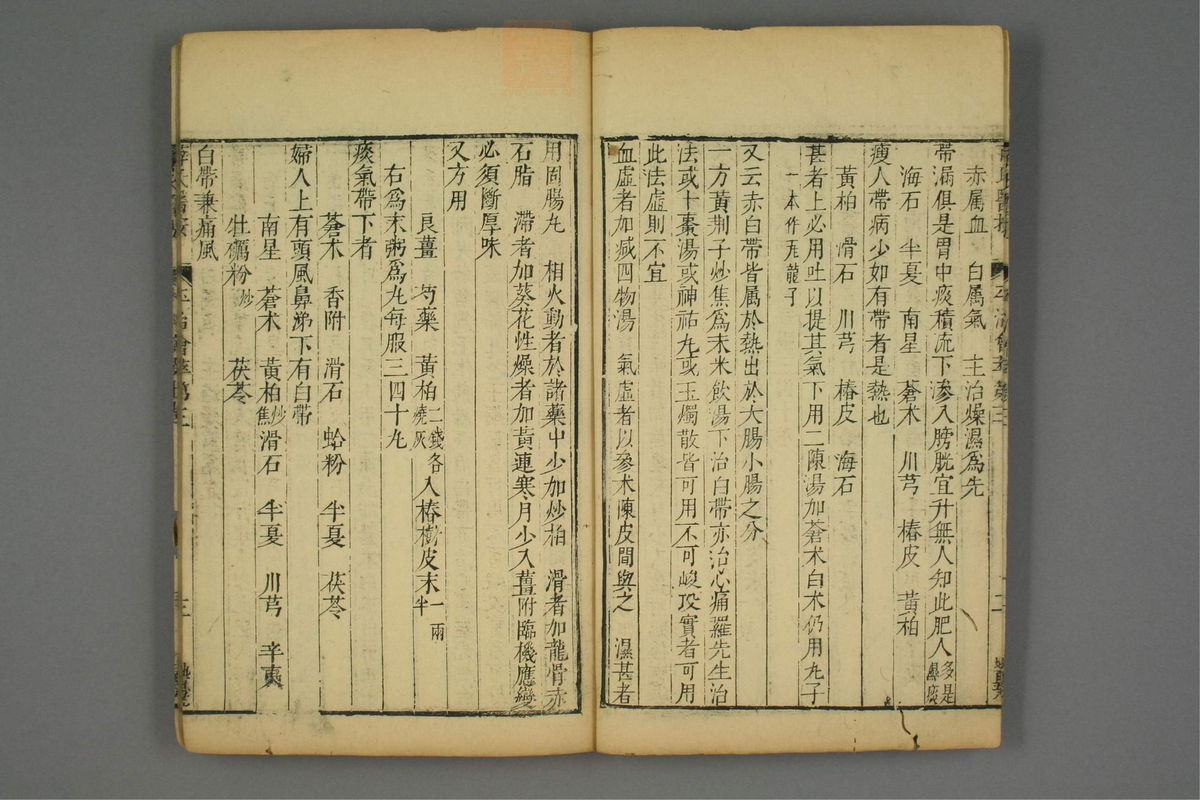 赤属血 白属氣 主治燥濕爲先
帶漏俱是胃中痰積流下滲入膀胱宜升無人知此肥人多是濕痰
海石 半夏 南星 蒼朮 川芎 椿皮 黃柏
瘦人帶病少如有帶者是熱也
黃柏 滑石 川芎 椿皮 海石
甚者上必用吐以提其氣下用二陳湯加蒼术白术仍用丸子
一本作瓦龍子
又云赤白帶皆属於熱出於大腸小腸之分
一方黃荆子炒焦爲末米飲湯下治白帶亦治心痛羅先生治
法或十棗湯或神祐丸或玉燭散皆可用不可峻攻實者可用
此法虛則不宜
血虛者加減四物湯 氣虛者以參术陳皮間與之 濕甚者
用固腸丸 相火動者於諸藥中少加炒柏 滑者加龍骨赤
石脂 滯者加葵花性燥者加黃連寒月少入薑附臨機應變
必須斷厚味
又方用
良薑 芍藥 黃柏二錢各燒灰 入椿樹皮末一兩半
右爲末粥爲丸每服三四十丸
痰氣帶下者
蒼术 香附 滑石 蛤粉 半夏 茯苓
婦人上有頭風鼻涕下有白帶
南星 蒼术 黃柏炒焦 滑石 半夏 川芎 辛夷
牡礪粉炒 茯苓
白帶兼痛風